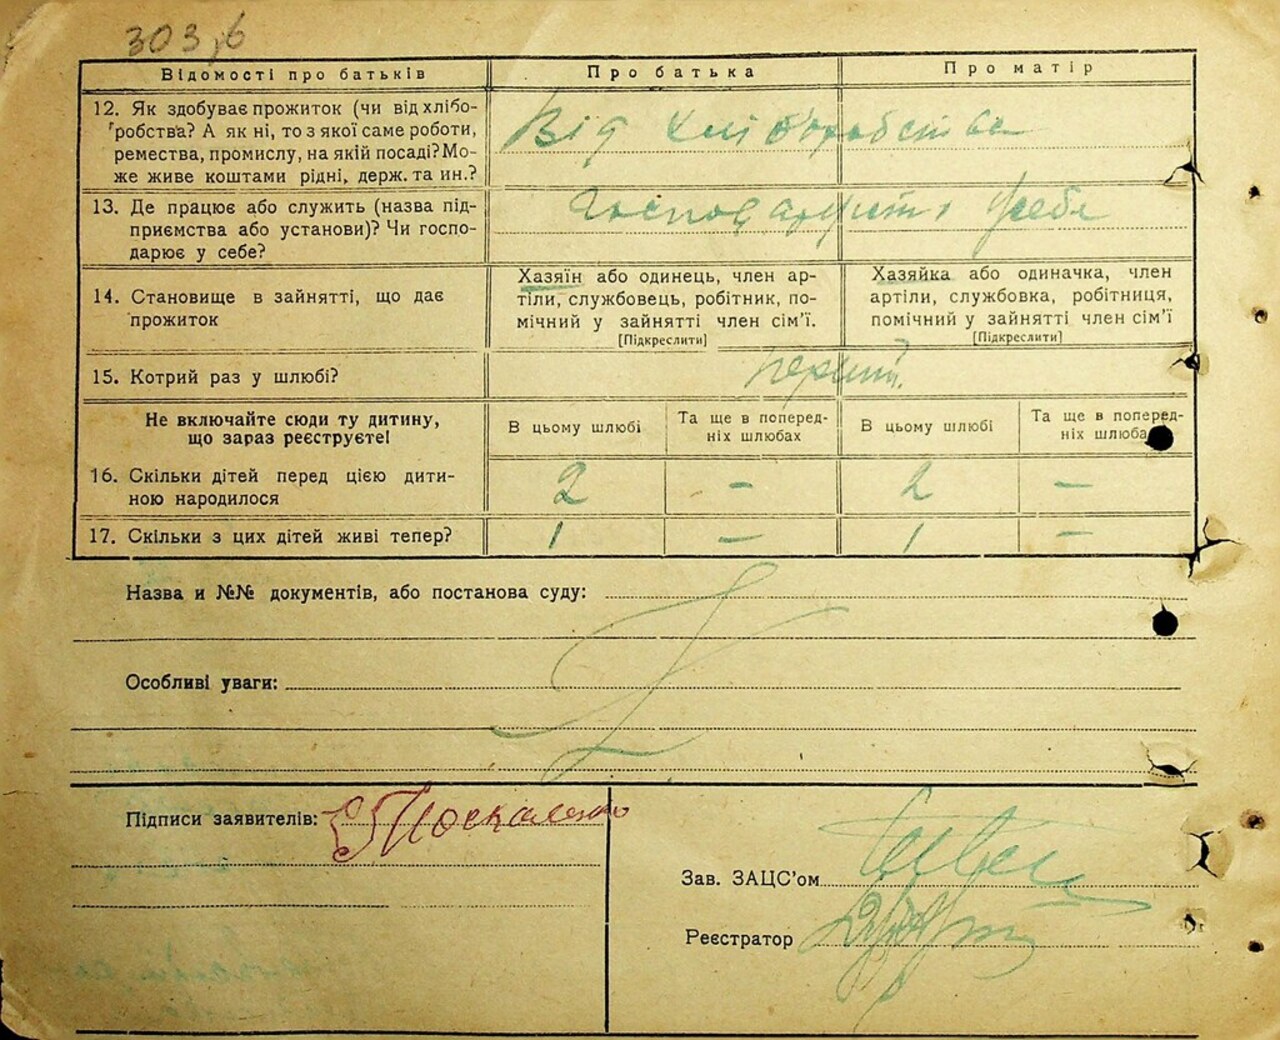 303,6
Відомості про батьків
Про батька
Про матір
12. Як здобуває прожиток (чи від хлібо-
робства? А як ні, то з якої саме роботи,
ремества, промислу, на якій посаді? Мо-
же живе коштами рідні, держ. та ин.?
Від хліборобства
13. Де працює або служить (назва під-
приємства або установи)? Чи госпо-
дарює у себе?
у себе
14. Становище в зайнятті, що дає
прожиток
Хазяїн або одинець, член ар-
тіли, службовець, робітник, по-
мічний у зайнятті член сім'ї.
[Підкреслити]
Хазяйка або одиначка, член
артіли, службовка, робітниця,
помічний у зайнятті член сім'ї
[Підкреслити]
15. Котрий раз у шлюбі?
Не включайте сюди ту дитину,
що зараз реєструєте!
В цьому шлюбі
Та ще в поперед-
ніх шлюбах
В цьому шлюбі
Та ще в поперед-
ніх шлюба
16. Скільки дітей перед цією дити-
ною народилося
2 – 2 –
17. Скільки з цих дітей живі тепер?
1 – 1 –
Назва и №№ документів, або постанова суду:
Особливі уваги:
Підписи заявителів: Москаленко
Зав. ЗАЦС'ом
Реєстратор